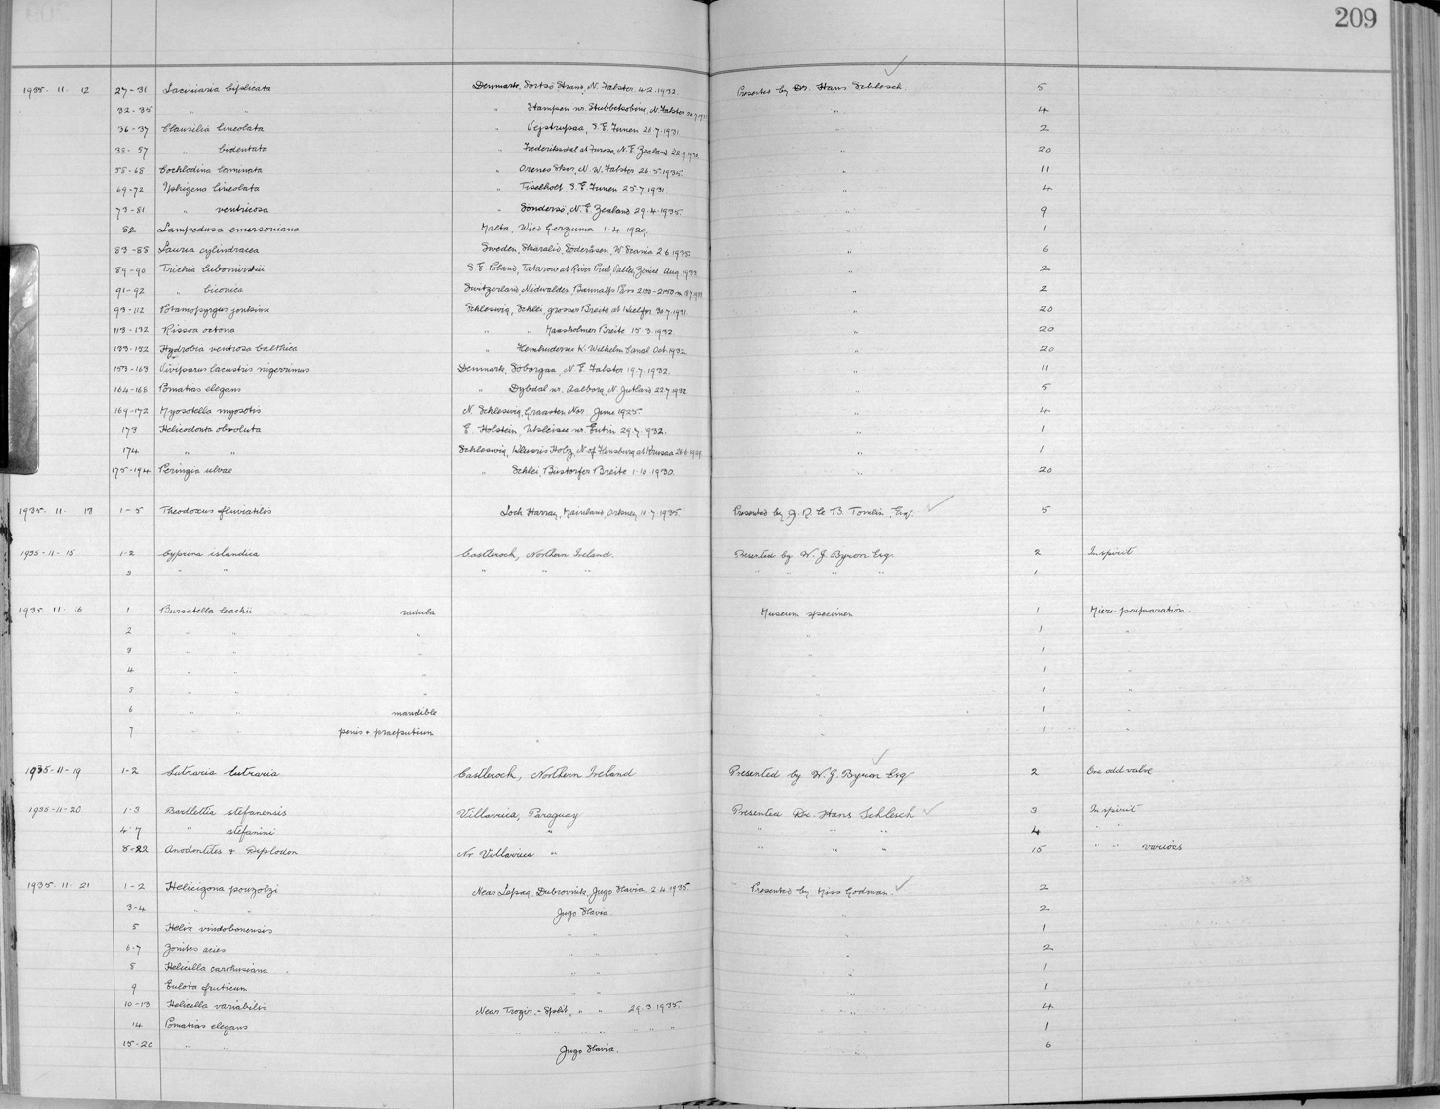 209
1935. 11. 12 27-31 Laciniaria biplicata Denmark, Sortsö Strand, N. Falster 4.2.1932 Presented by Dr. Hans Schlesch. 5
32-35 " " " Stampen nr. Stubbekobing, N. Falster " 4
36-37 Clausilia lineolata " Vejstrupaa, S.E. Funen 26.7.1931 " 2
38-57 " bidentata " Frederiksdal at Furesø, N.E. Zealand " 20
58-68 Cochlodina laminata " Orenes Skov, N.W. Falster 26.5.1935 " 11
69-72 Iphigena lineolata " Tiselholt S.E. Funen 25.7.1931 " 4
73-81 " ventricosa " Söndersö, N.E. Zealand 29.4.1935. " 9
82 Lampedusa Malta, Wied 1.4.1929. " 1
83-88 Lauria cylindracea Sweden, Skäralid, Söderåsen, W. Scania 2.6.1935 " 6
89-90 Trichia lubomirskii S.E. Poland, Tatarow at River Pruth Valley, Aug. 1933 " 2
91-92 " biconica Switzerland Nidwalden, Pass 2100-2150 m " 2
93-112 Potamopyrgus jenkinsi Schleswig, Schlei, grosser Breite at 30.7.1931 " 20
113-132 Rissoa octona " " Maasholmer Breite 15.3.1932. " 20
133-152 Hydrobia ventrosa balthica " K. Wilhelm Canal Oct. 1932 " 20
153-163 Viviparus lacustris nigerrimus Denmark, Söborgaa, N.E. Falster 19.7.1932. " 11
164-168 Pomatias elegans " Dybdal nr. Aalborg, N. Jutland 22.7.1932 " 5
169-172 Myosotella myosotis N. Schleswig, Graasten Nor June 1925 " 4
173 Helicodonta obvoluta E. Holstein, nr. Eutin 29.7.1932. " 1
174 " " Schleswig, Kluesris Holz, N. of Flensburg at Krusaa " 1
175-194 Peringia ulvae " Schlei, Büstorfer Breite 1.10.1930. " 20
1935. 11. 13 1-5 Theodoxus fluviatilis Loch Harray, Mainland Orkney 11.7.1935. Presented by J. R. le B. Tomlin, Esq. 5
1935-11-15 1-2 Cyprina islandica Castlerock, Northern Ireland. Presented by W. J. Byron Esq. 2 In spirit
3 " " " " " " " " " 1
1935 11. 16 1 Bursatella leachii radula Museum specimen 1 Micro-preparation.
2 " " " " 1 "
3 " " " " 1 "
4 " " " " 1 "
5 " " " " 1 "
6 " " mandible " 1 "
7 " " penis + praeputium " 1 "
1935-11-19 1-2 Lutraria lutraria Castlerock, Northern Ireland Presented by W. J. Byron Esq 2 One odd valve
1935-11-20 1-3 Bartlettia stefanensis Villarica, Paraguay Presented Dr. Hans Schlesch 3 In spirit
4-7 " stefanini " " " " 4 " "
8-22 Anodontites + Diplodon Nr Villarica " " " " 15 " " various
1935. 11. 21 1-2 Helicigona pouzolzi Near Lapad, Dubrovnik, Jugo Slavia. 2.4.1935. Presented by Miss Godman. 2
3-4 " " Jugo Slavia. " 2
5 Helix vindobonensis " " " 1
6-7 Zonites acies " " " 2
8 Helicella carthusiana " " " 1
9 Eulota fruticum " " " 1
10-13 Helicella variabilis Near Trogir - Split, " " 29.3.1935. " 4
14 Pomatias elegans " " " " " " 1
15-20 " " Jugo Slavia. " 6